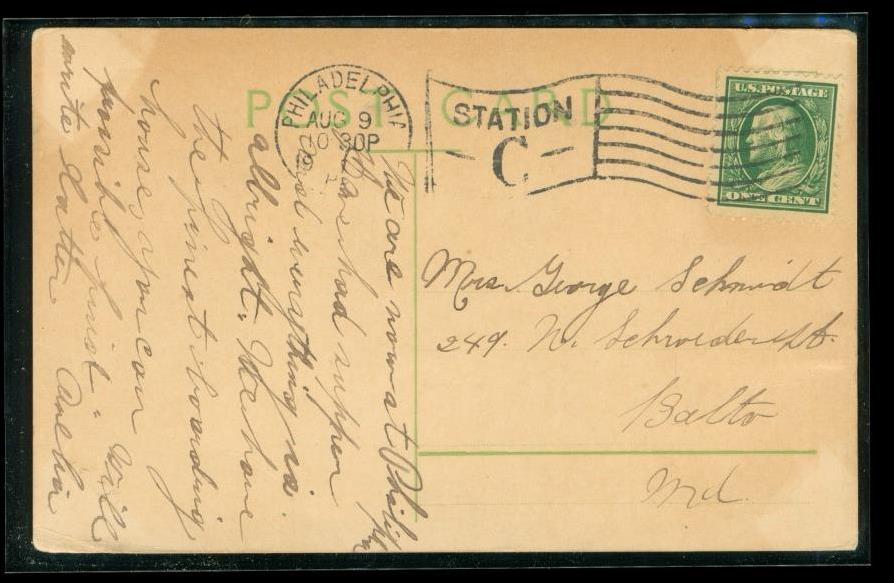 POST CARD
PHILADELPHIA
AUG 9
10 30P
STATION
C
U.S. POSTAGE
ONE CENT
Mrs. George Schmidt
249. N. Schroeder St.
Balto
Md.
We are now at Phila
has had supper
and everything is
allright. We have
the finest boarding
house, you can
possible find. Will
write later